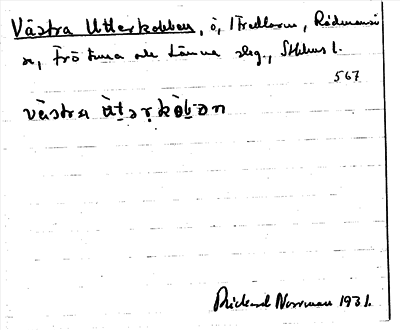 Västra Utterkobben, ö, i Fredlarna, Rådmansö
sn, Frötuna och Länna skg., Sthlms l.
567
västra ùtərkòbən
Rickard Norrman 1931.